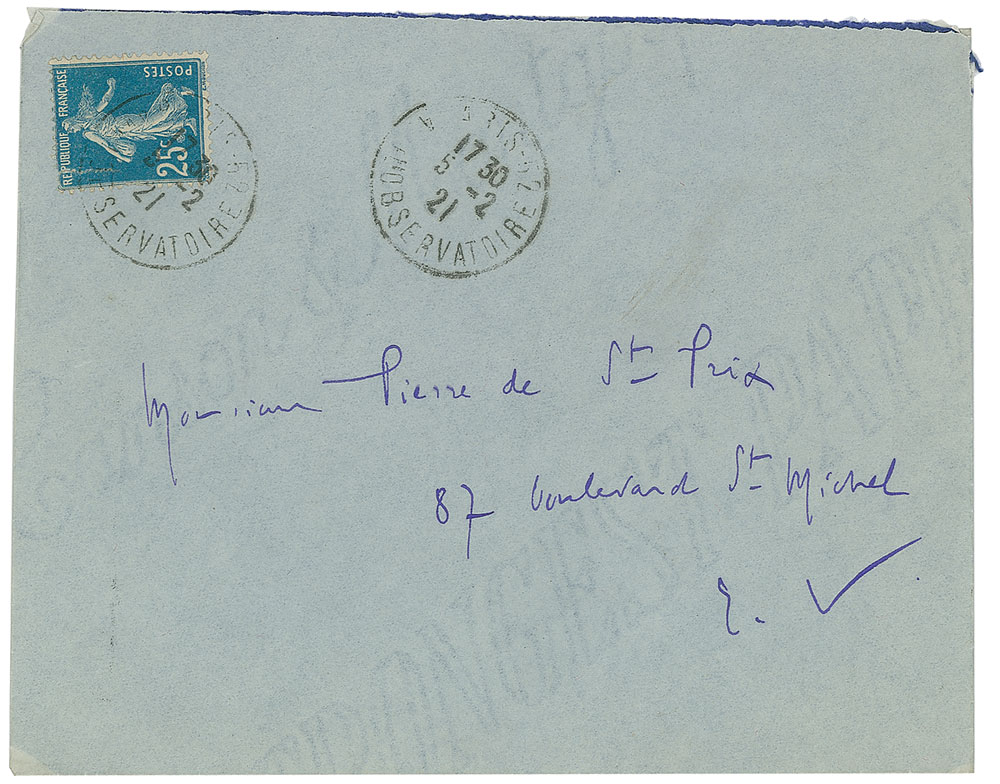 REPUBLIQUE FRANÇAISE
POSTES
25c
SERVATOIRE
21 -2
PARIS-52
17 30
5 -2
21
OBSERVATOIRE
Monsieur Pierre de St Prix
87 boulevard St Michel
E. V